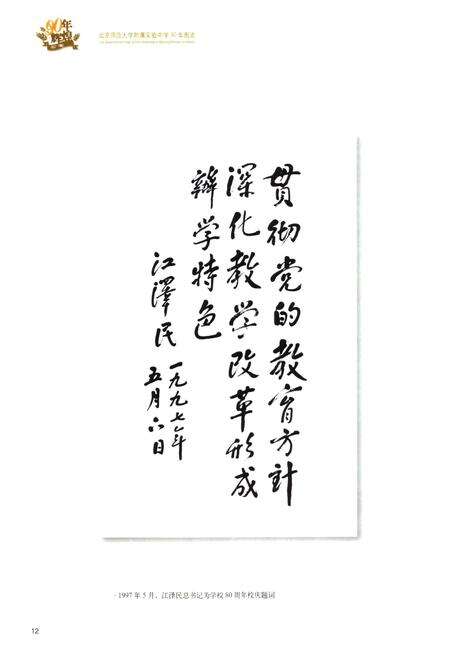 90年
辉煌
北京师范大学附属实验中学90年图志
贯彻党的教育方针
深化教学改革形成
辦学特色
江澤民
一九九七年
五月六日
·1997年5月，江泽民总书记为学校80周年校庆题词
12